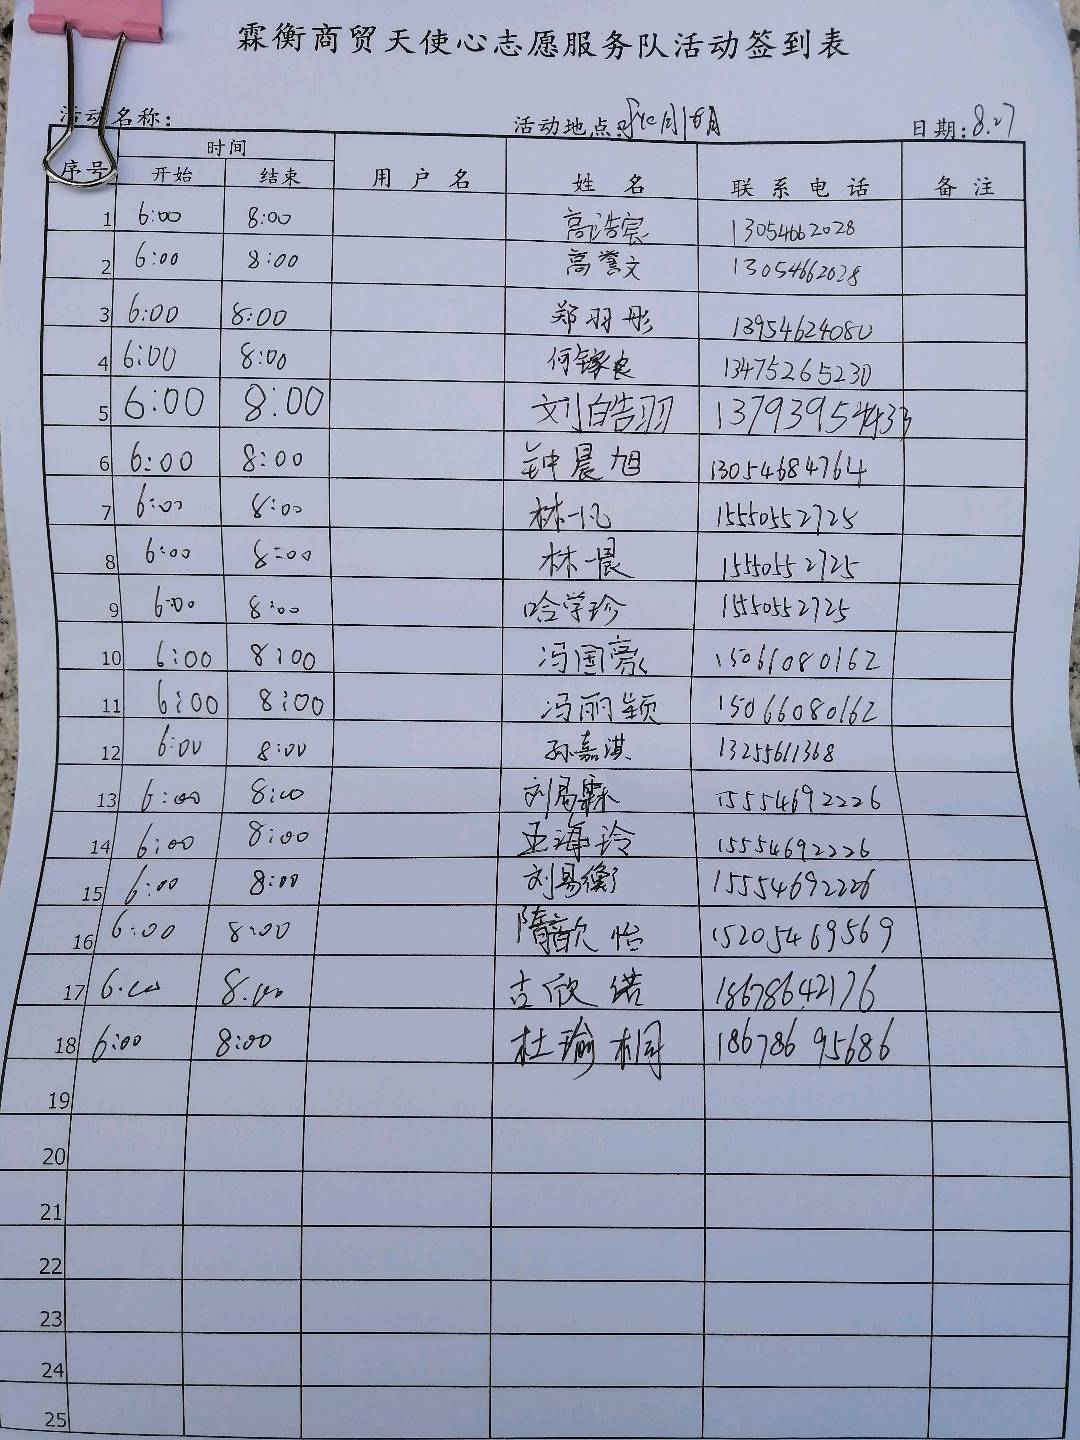 霖衡商贸天使心志愿服务队活动签到表
活动名称： 活动地点： 日期：8.27
序号 时间 用户名 姓名 联系电话 备注
开始 结束
1 6:00 8:00 高浩宸 13054662028
2 6:00 8:00 高誉文 13054662028
3 6:00 8:00 郑羽彤 13954624080
4 6:00 8:00 何镓良 13475265230
5 6:00 8:00 刘皓羽 13793954433
6 6:00 8:00 钟晨旭 13054684764
7 6:00 8:00 林一凡 15550552725
8 6:00 8:00 林一晨 15550552725
9 6:00 8:00 哈学珍 15550552725
10 6:00 8:00 冯国豪 15066080162
11 6:00 8:00 冯丽颖 15066080162
12 6:00 8:00 孙嘉淇 13255611368
13 6:00 8:00 刘易霖 15554692226
14 6:00 8:00 王海玲 15554692226
15 6:00 8:00 刘易衡 15554692226
16 6:00 8:00 隋歆怡 15205469569
17 6:00 8:00 吉欣诺 18678642176
18 6:00 8:00 杜瑜桐 18678695686
19
20
21
22
23
24
25